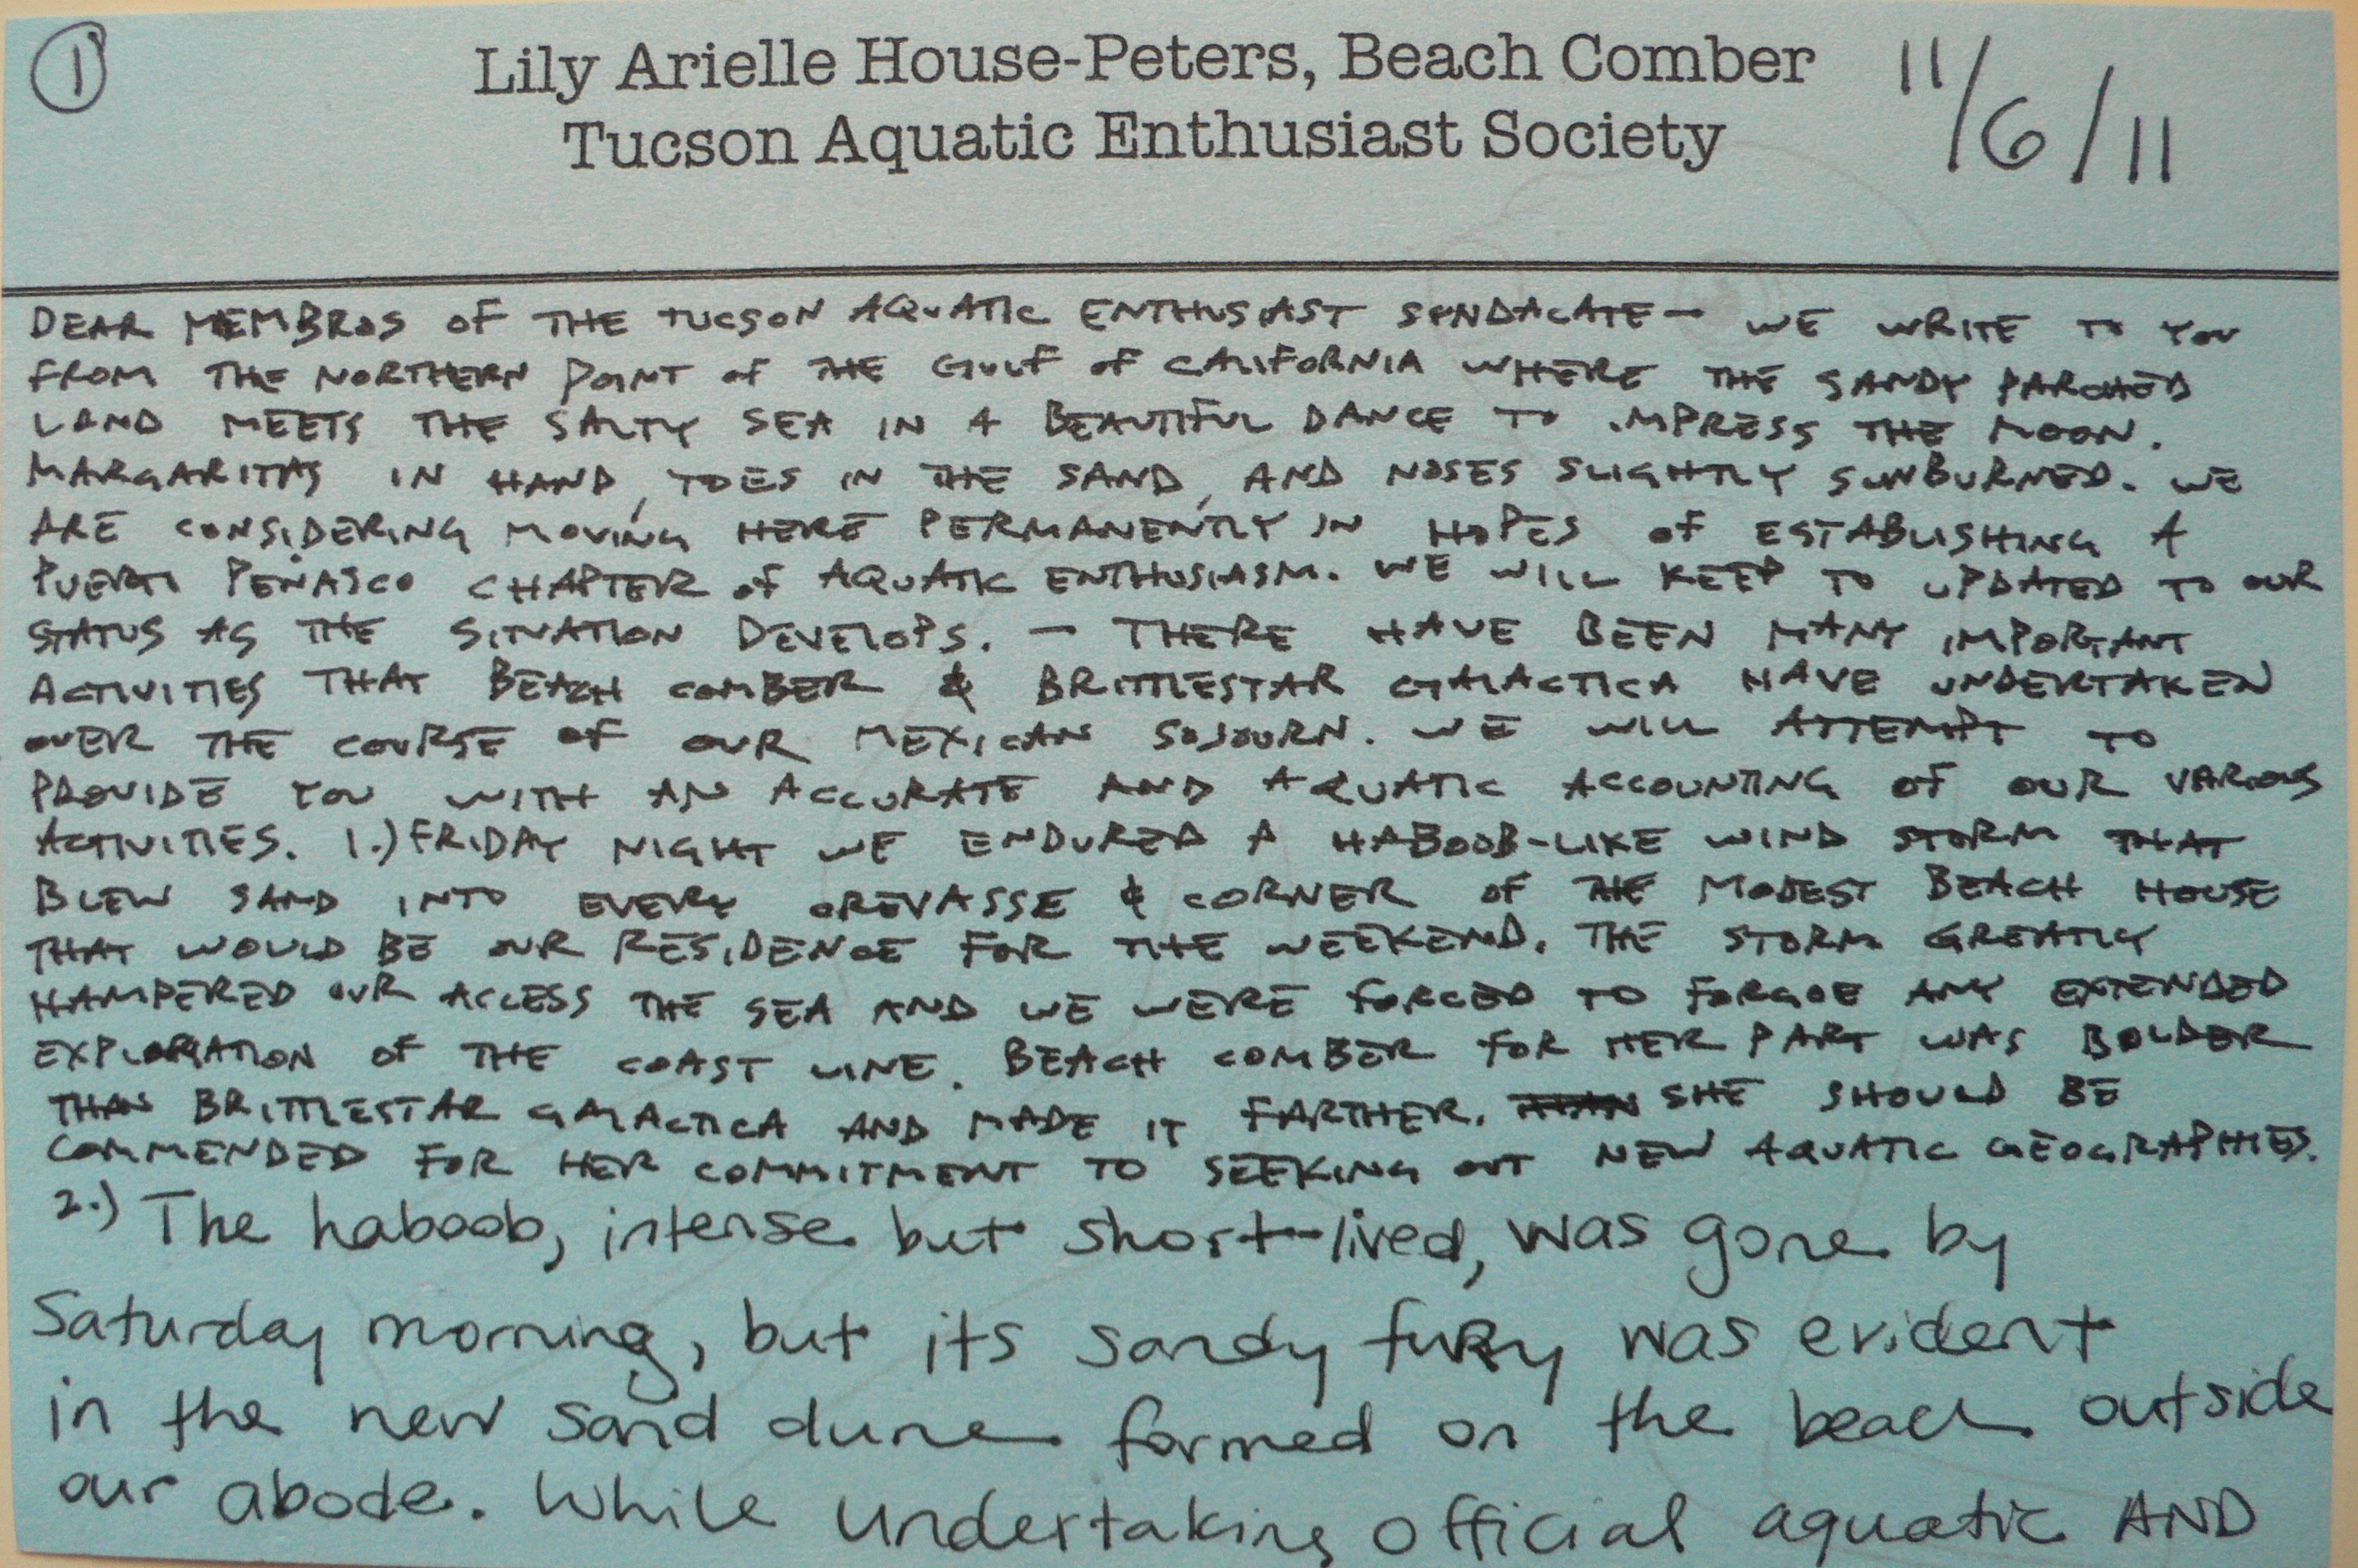 1 Lily Arielle House-Peters, Beach Comber 11/6/11
Tucson Aquatic Enthusiast Society
DEAR MEMBROS OF THE TUCSON AQUATIC ENTHUSIAST SYNDACATE - WE WRITE TO YOU
FROM THE NORTHERN POINT OF THE GULF OF CALIFORNIA WHERE THE SANDY PARCHED
LAND MEETS THE SALTY SEA IN A BEAUTIFUL DANCE TO IMPRESS THE MOON.
MARGARITAS IN HAND, TOES IN THE SAND, AND NOSES SLIGHTLY SUNBURNED. WE
ARE CONSIDERING MOVING HERE PERMANENTLY IN HOPES OF ESTABLISHING A
PUERTO PEÑASCO CHAPTER OF AQUATIC ENTHUSIASM. WE WILL KEEP TO UPDATED TO OUR
STATUS AS THE SITUATION DEVELOPS. - THERE HAVE BEEN MANY IMPORTANT
ACTIVITIES THAT BEACH COMBER & BRITTLESTAR GALACTICA HAVE UNDERTAKEN
OVER THE COURSE OF OUR MEXICAN SOJOURN. WE WILL ATTEMPT TO
PROVIDE YOU WITH AN ACCURATE AND AQUATIC ACCOUNTING OF OUR VARIOUS
ACTIVITIES. 1.) FRIDAY NIGHT WE ENDURED A HABOOB-LIKE WIND STORM THAT
BLEW SAND INTO EVERY CREVASSE & CORNER OF THE MODEST BEACH HOUSE
THAT WOULD BE OUR RESIDENCE FOR THE WEEKEND. THE STORM GREATLY
HAMPERED OUR ACCESS THE SEA AND WE WERE FORCED TO FORGOE ANY EXTENDED
EXPLORATION OF THE COAST LINE. BEACH COMBER FOR HER PART WAS BOLDER
THAN BRITTLESTAR GALACTICA AND MADE IT FARTHER. THAN SHE SHOULD BE
COMMENDED FOR HER COMMITMENT TO SEEKING OUT NEW AQUATIC GEOGRAPHIES.
2.) The haboob, intense but short-lived, was gone by
Saturday morning, but its sandy fury was evident
in the new sand dune formed on the beach outside
our abode. While undertaking official aquatic AND